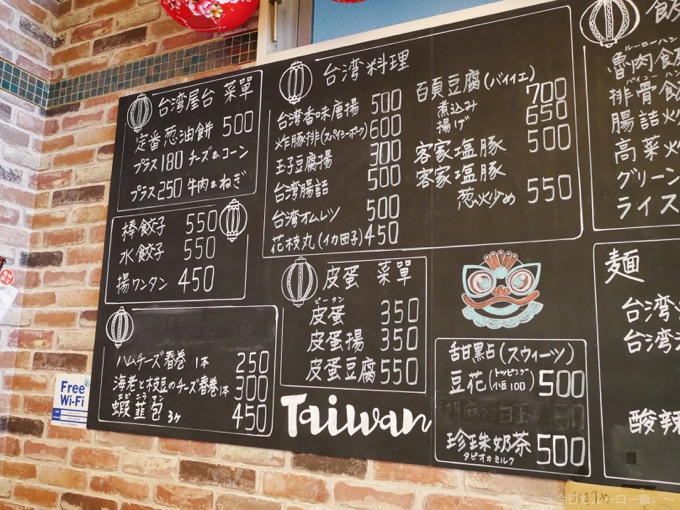 台湾屋台 菜單
定番葱油餅 500
プラス180 チーズ&コーン
プラス250 牛肉&ねぎ
棒餃子 550
水餃子 550
揚ワンタン 450
ハムチーズ春巻 1本 250
海老と枝豆のチーズ春巻1本 300
蝦韮包 3ヶ 450
Free
Wi-Fi
台湾料理
台湾香味唐揚 500
炸豚排(スパイシーポーク) 600
玉子豆腐揚 300
台湾腸詰 500
台湾オムレツ 500
花枝丸(イカ団子) 450
百頁豆腐(バイイエ)
煮込み 700
揚げ 650
客家塩豚 500
客家塩豚
葱火炒め 550
皮蛋 菜單
ピータン
皮蛋 350
皮蛋揚 350
皮蛋豆腐 550
Taiwan
甜點(スウィーツ)
豆花(トッピング 小豆100) 500
珍珠奶茶 500
タピオカミルク
飲
ルーローハン
魯肉飯
排骨飯
腸詰炒
高菜炒
グリーン
ライス
麺
台湾
台湾
酸辣